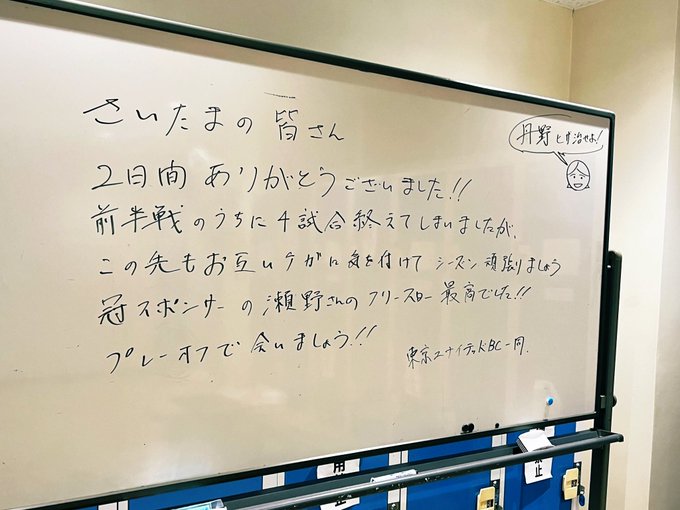 さいたまの皆さん
2日間ありがとうございました!!
前半戦のうちに4試合終えてしまいましたが、
この先もお互いケガに気を付けてシーズン頑張りましょう
冠スポンサーの瀬野さんのフリースロー最高でした!!
プレーオフで会いましょう!!
東京ユナイテッドBC一同.
丹野
止